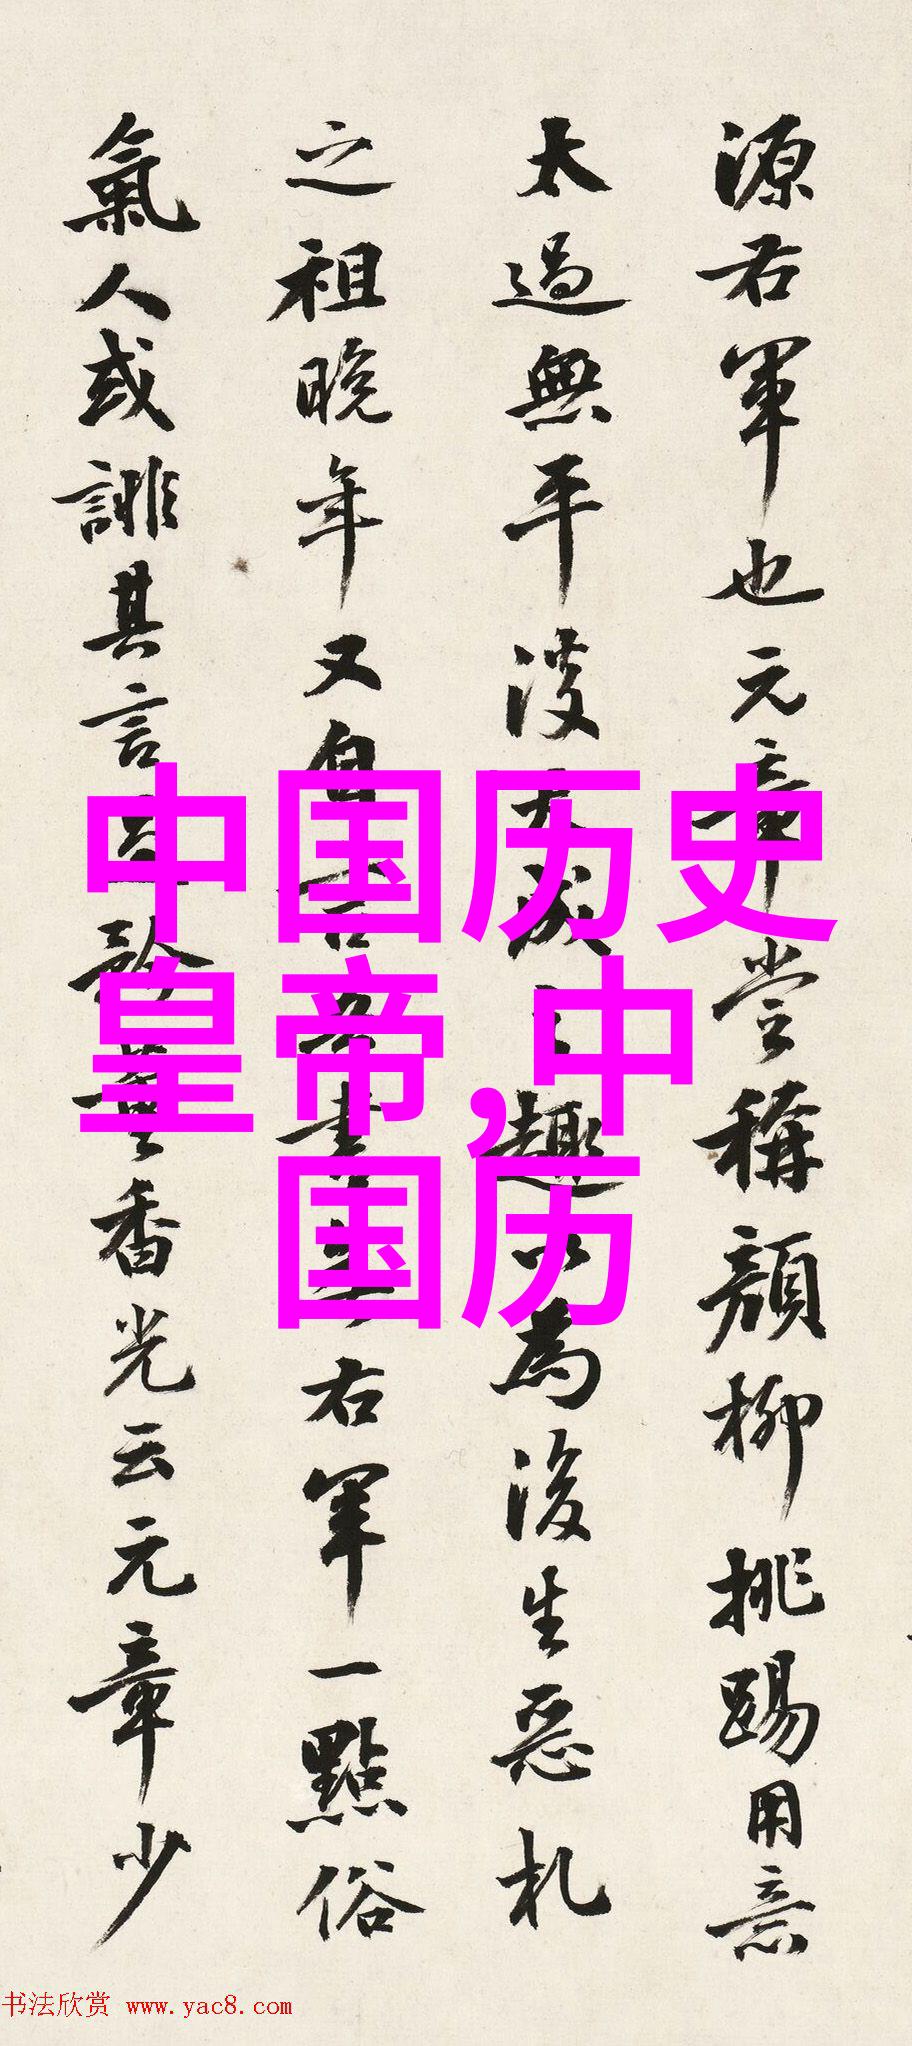 源右軍也元章嘗稱顏柳挑踢用意
太過無平淡天成之趣以為後生惡札
之祖晚年又自言吾書無右軍一點俗
氣人或誹其言之香光云元章少
中国历史
皇帝,中
国历
书法欣赏 www.yac8.com